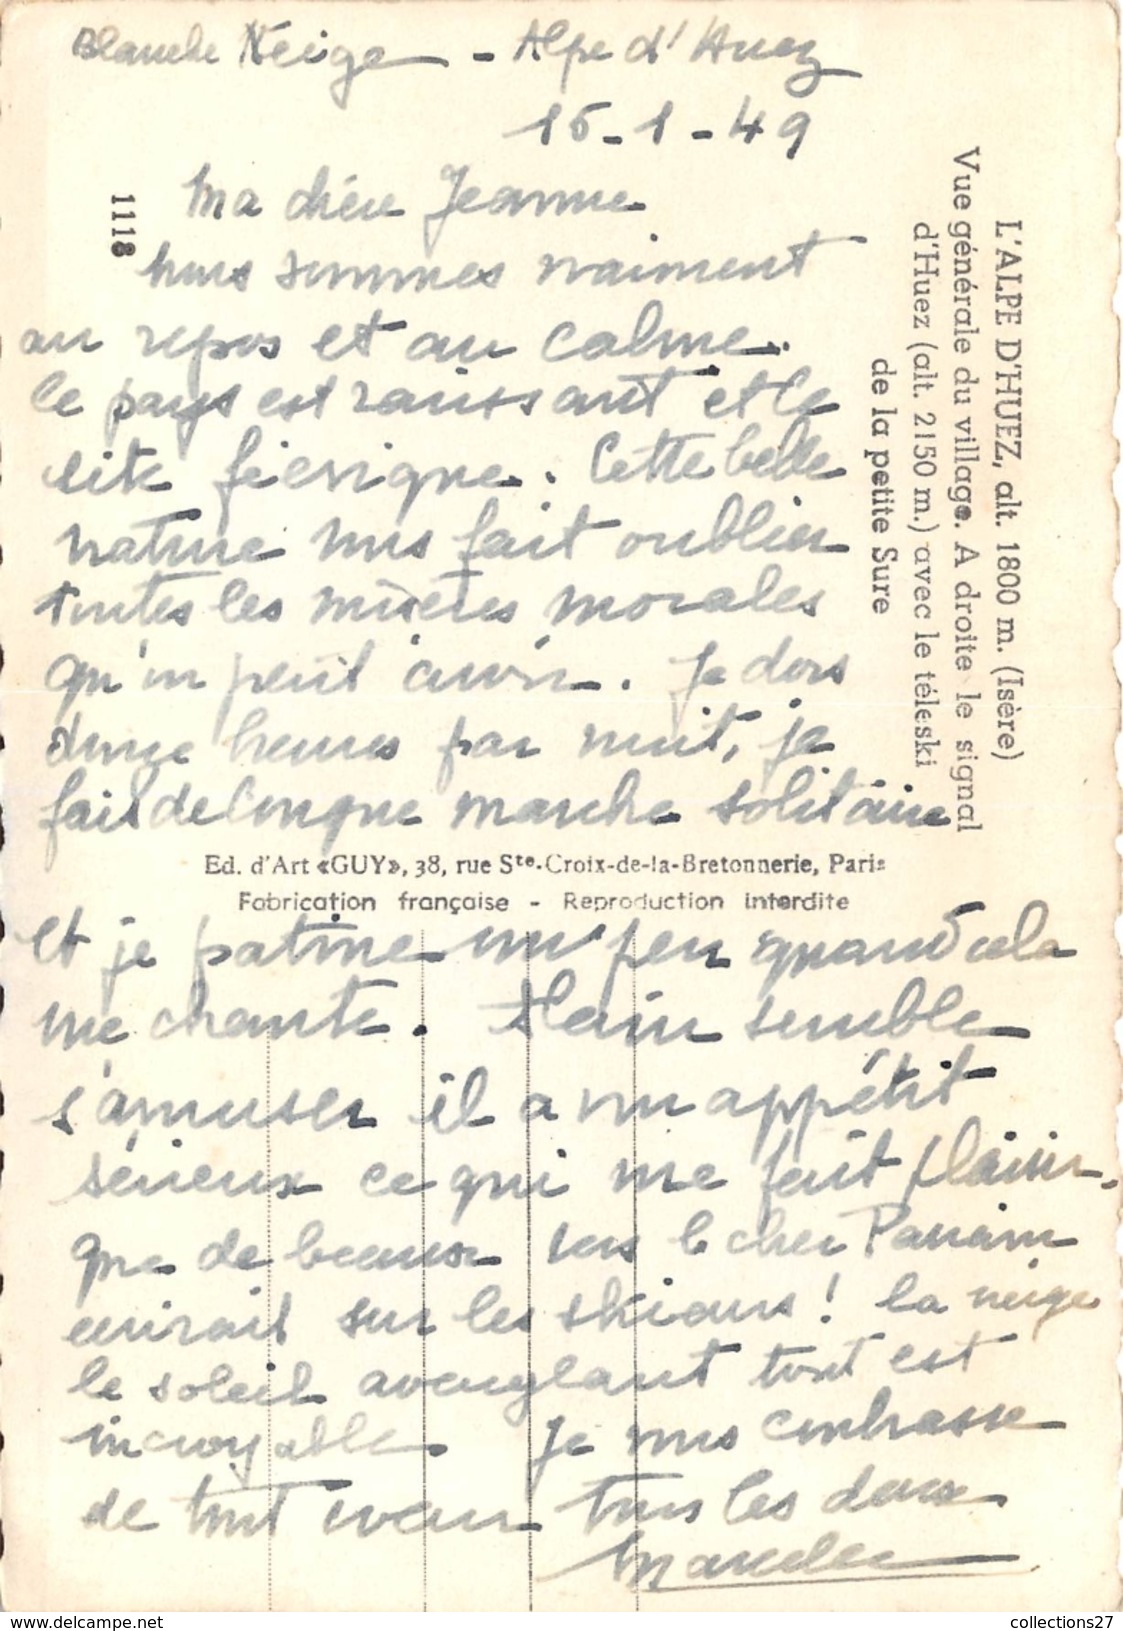 Blanche Neige - Alpe d'Huez
16-1-49
Ma chère Jeanne
nous sommes vraiment
au repos et au calme.
le pays est ravissant et le
site féerique. Cette belle
nature nous fait oublier
toutes les misères morales
qu'on peut avoir. Je dors
douze heures par nuit, je
fais de longue marche solitaire
Ed. d'Art «GUY», 38, rue Ste-Croix-de-la-Bretonnerie, Paris
Fabrication française - Reproduction interdite
et je patine un peu quand cela
me chante. Alain semble
s'amuser il a un appétit
sérieux ce qui me fait plaisir.
que de beaux vers le cher Panaim
écrirait sur les skieurs! la neige
le soleil aveuglant tout est
incroyable. Je vous embrasse
de tout coeur tous les deux
1118
L'ALPE D'HUEZ, alt. 1800 m. (Isère)
Vue générale du village. A droite le signal
d'Huez (alt. 2150 m.) avec le téleski
de la petite Sure
collections27